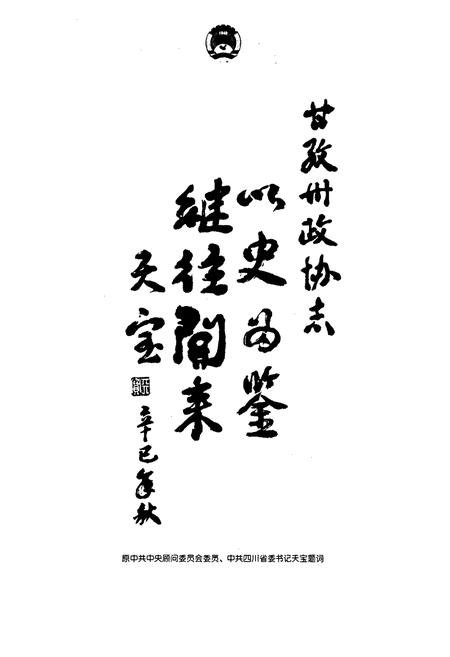 甘孜州政协志
以史为鉴
继往开来
天宝
辛巳年秋
原中共中央顾问委员会委员、中共四川省委书记天宝题词